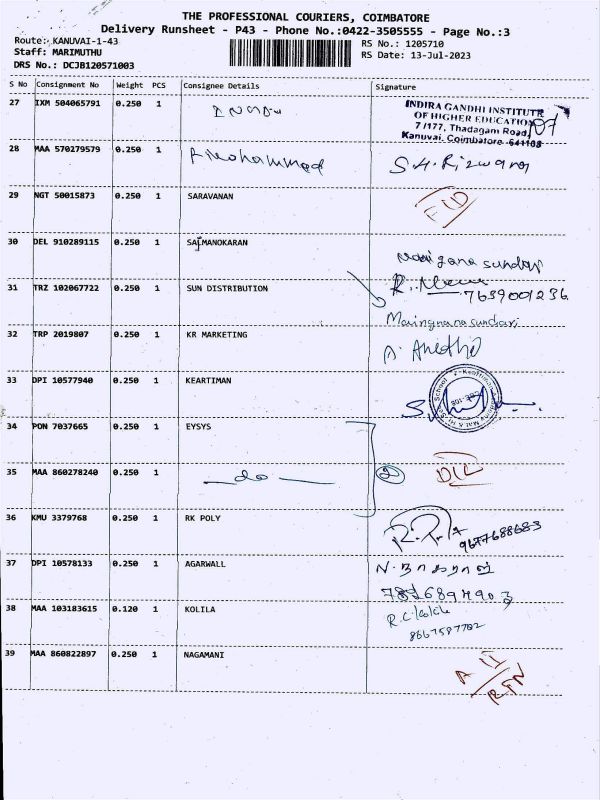 THE PROFESSIONAL COURIERS, COIMBATORE
Delivery Runsheet - P43 - Phone No.:0422-3505555 - Page No.:3
Route:- KANUVAI-1-43 RS No.: 1205710
Staff: MARIMUTHU RS Date: 13-Jul-2023
DRS No.: DCJB120571003
S No Consignment No Weight PCS Consignee Details Signature
27 IXM 504065791 0.250 1
INDIRA GANDHI INSTITUTE
OF HIGHER EDUCATION
7/177, Thadagam Road,
Kanuvai, Coimbatore-641108
28 MAA 570279579 0.250 1 A Mohammed S.H.Rizwana
29 NGT 50015873 0.250 1 SARAVANAN
30 DEL 910289115 0.250 1 SAIMANOKARAN
31 TRZ 102067722 0.250 1 SUN DISTRIBUTION
7639001236
32 TRP 2019807 0.250 1 KR MARKETING
33 DPI 10577940 0.250 1 KEARTIMAN
34 PON 7037665 0.250 1 EYSYS
35 MAA 860278240 0.250 1 do 2
36 KMU 3379768 0.250 1 RK POLY
9677688683
37 DPI 10578133 0.250 1 AGARWALL N. நாகராஜ்
38 MAA 103183615 0.120 1 KOLILA
8667587702
39 MAA 860822897 0.250 1 NAGAMANI